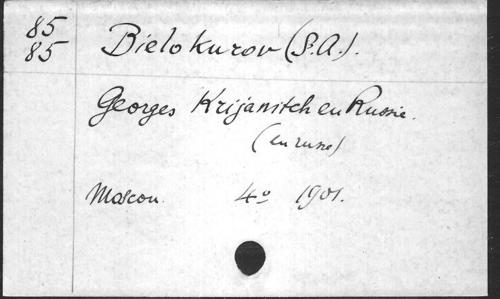 85
85
Bielokurov (S.A.).
Georges Krijanitch en Russie.
(en russe)
Moscou. 4º 1901.